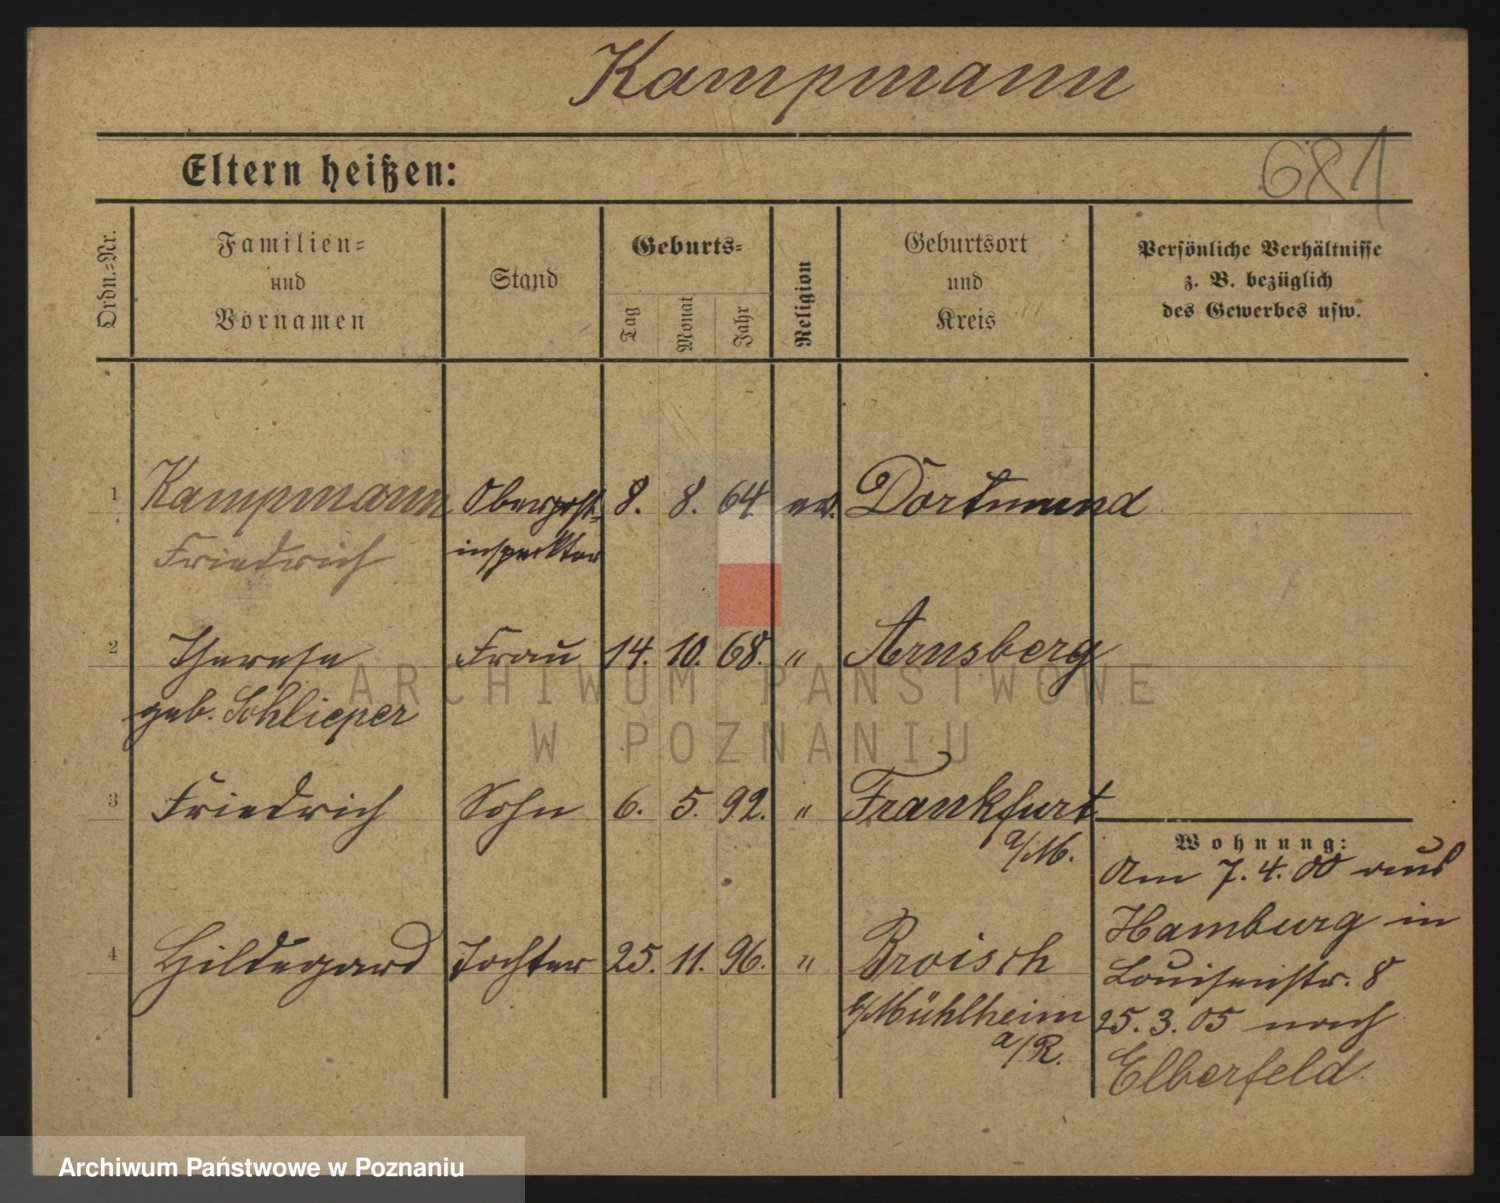 Kampmann
681
Eltern heißen:
Ordn.-Nr.
Familien-
und
Vornamen
Stand
Geburts-
Tag
Monat
Jahr
Religion
Geburtsort
und
Kreis
Persönliche Verhältnisse
z. B. bezüglich
des Gewerbes usw.
1 Kampmann Oberpost- 8. 8. 64. ev. Dortmund
Friedrich inspektor
2 Therese Frau 14. 10. 68. " Arnsberg
geb. Schlieper
3 Friedrich Sohn 6. 5. 92. " Frankfurt
a/M.
4 Hildegard Tochter 25. 11. 96. " Broisch
b/Mühlheim
a/R.
Wohnung:
Am 7. 4. 00 aus
Hamburg in
Louisenstr. 8
25. 3. 05 nach
Elberfeld
ARCHIWUM PAŃSTWOWE
W POZNANIU
Archiwum Państwowe w Poznaniu